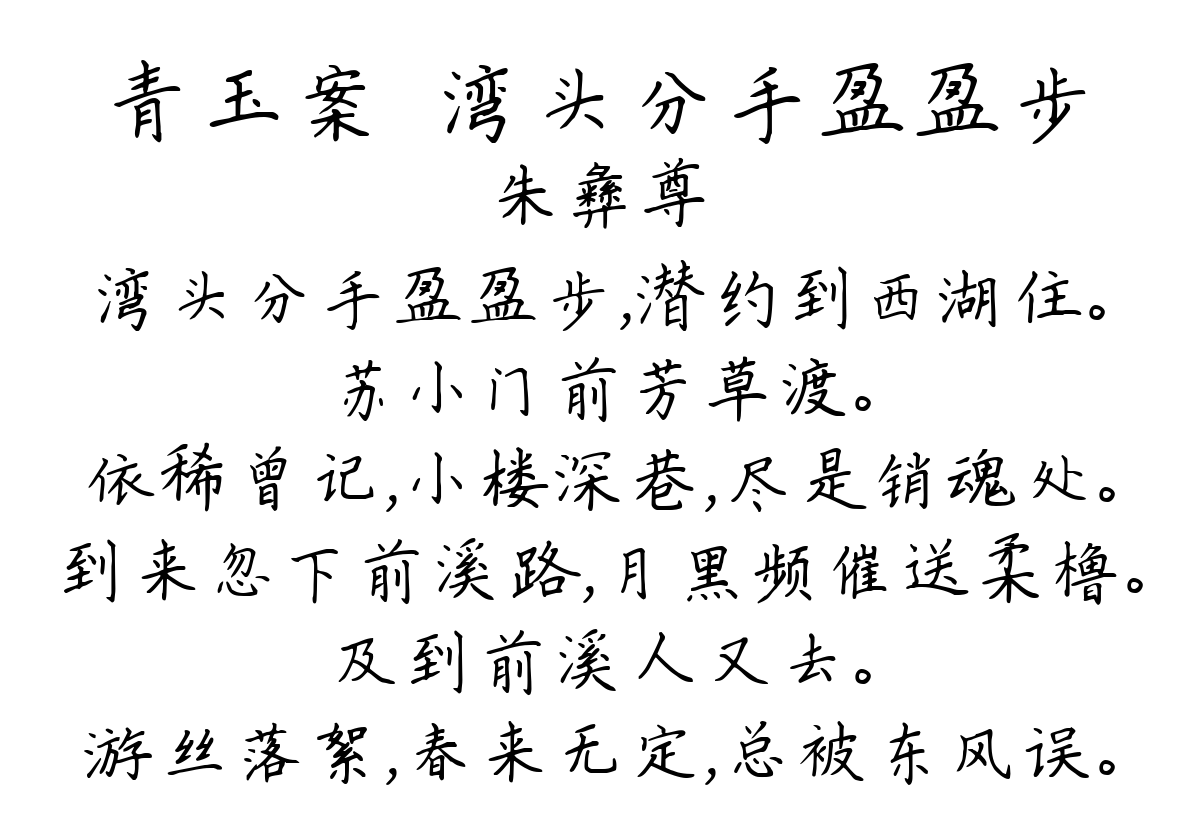 青玉案 湾头分手盈盈步
朱彝尊
湾头分手盈盈步,潜约到西湖住。
苏小门前芳草渡。
依稀曾记,小楼深巷,尽是销魂处。
到来忽下前溪路,月黑频催送柔橹。
及到前溪人又去。
游丝落絮,春来无定,总被东风误。